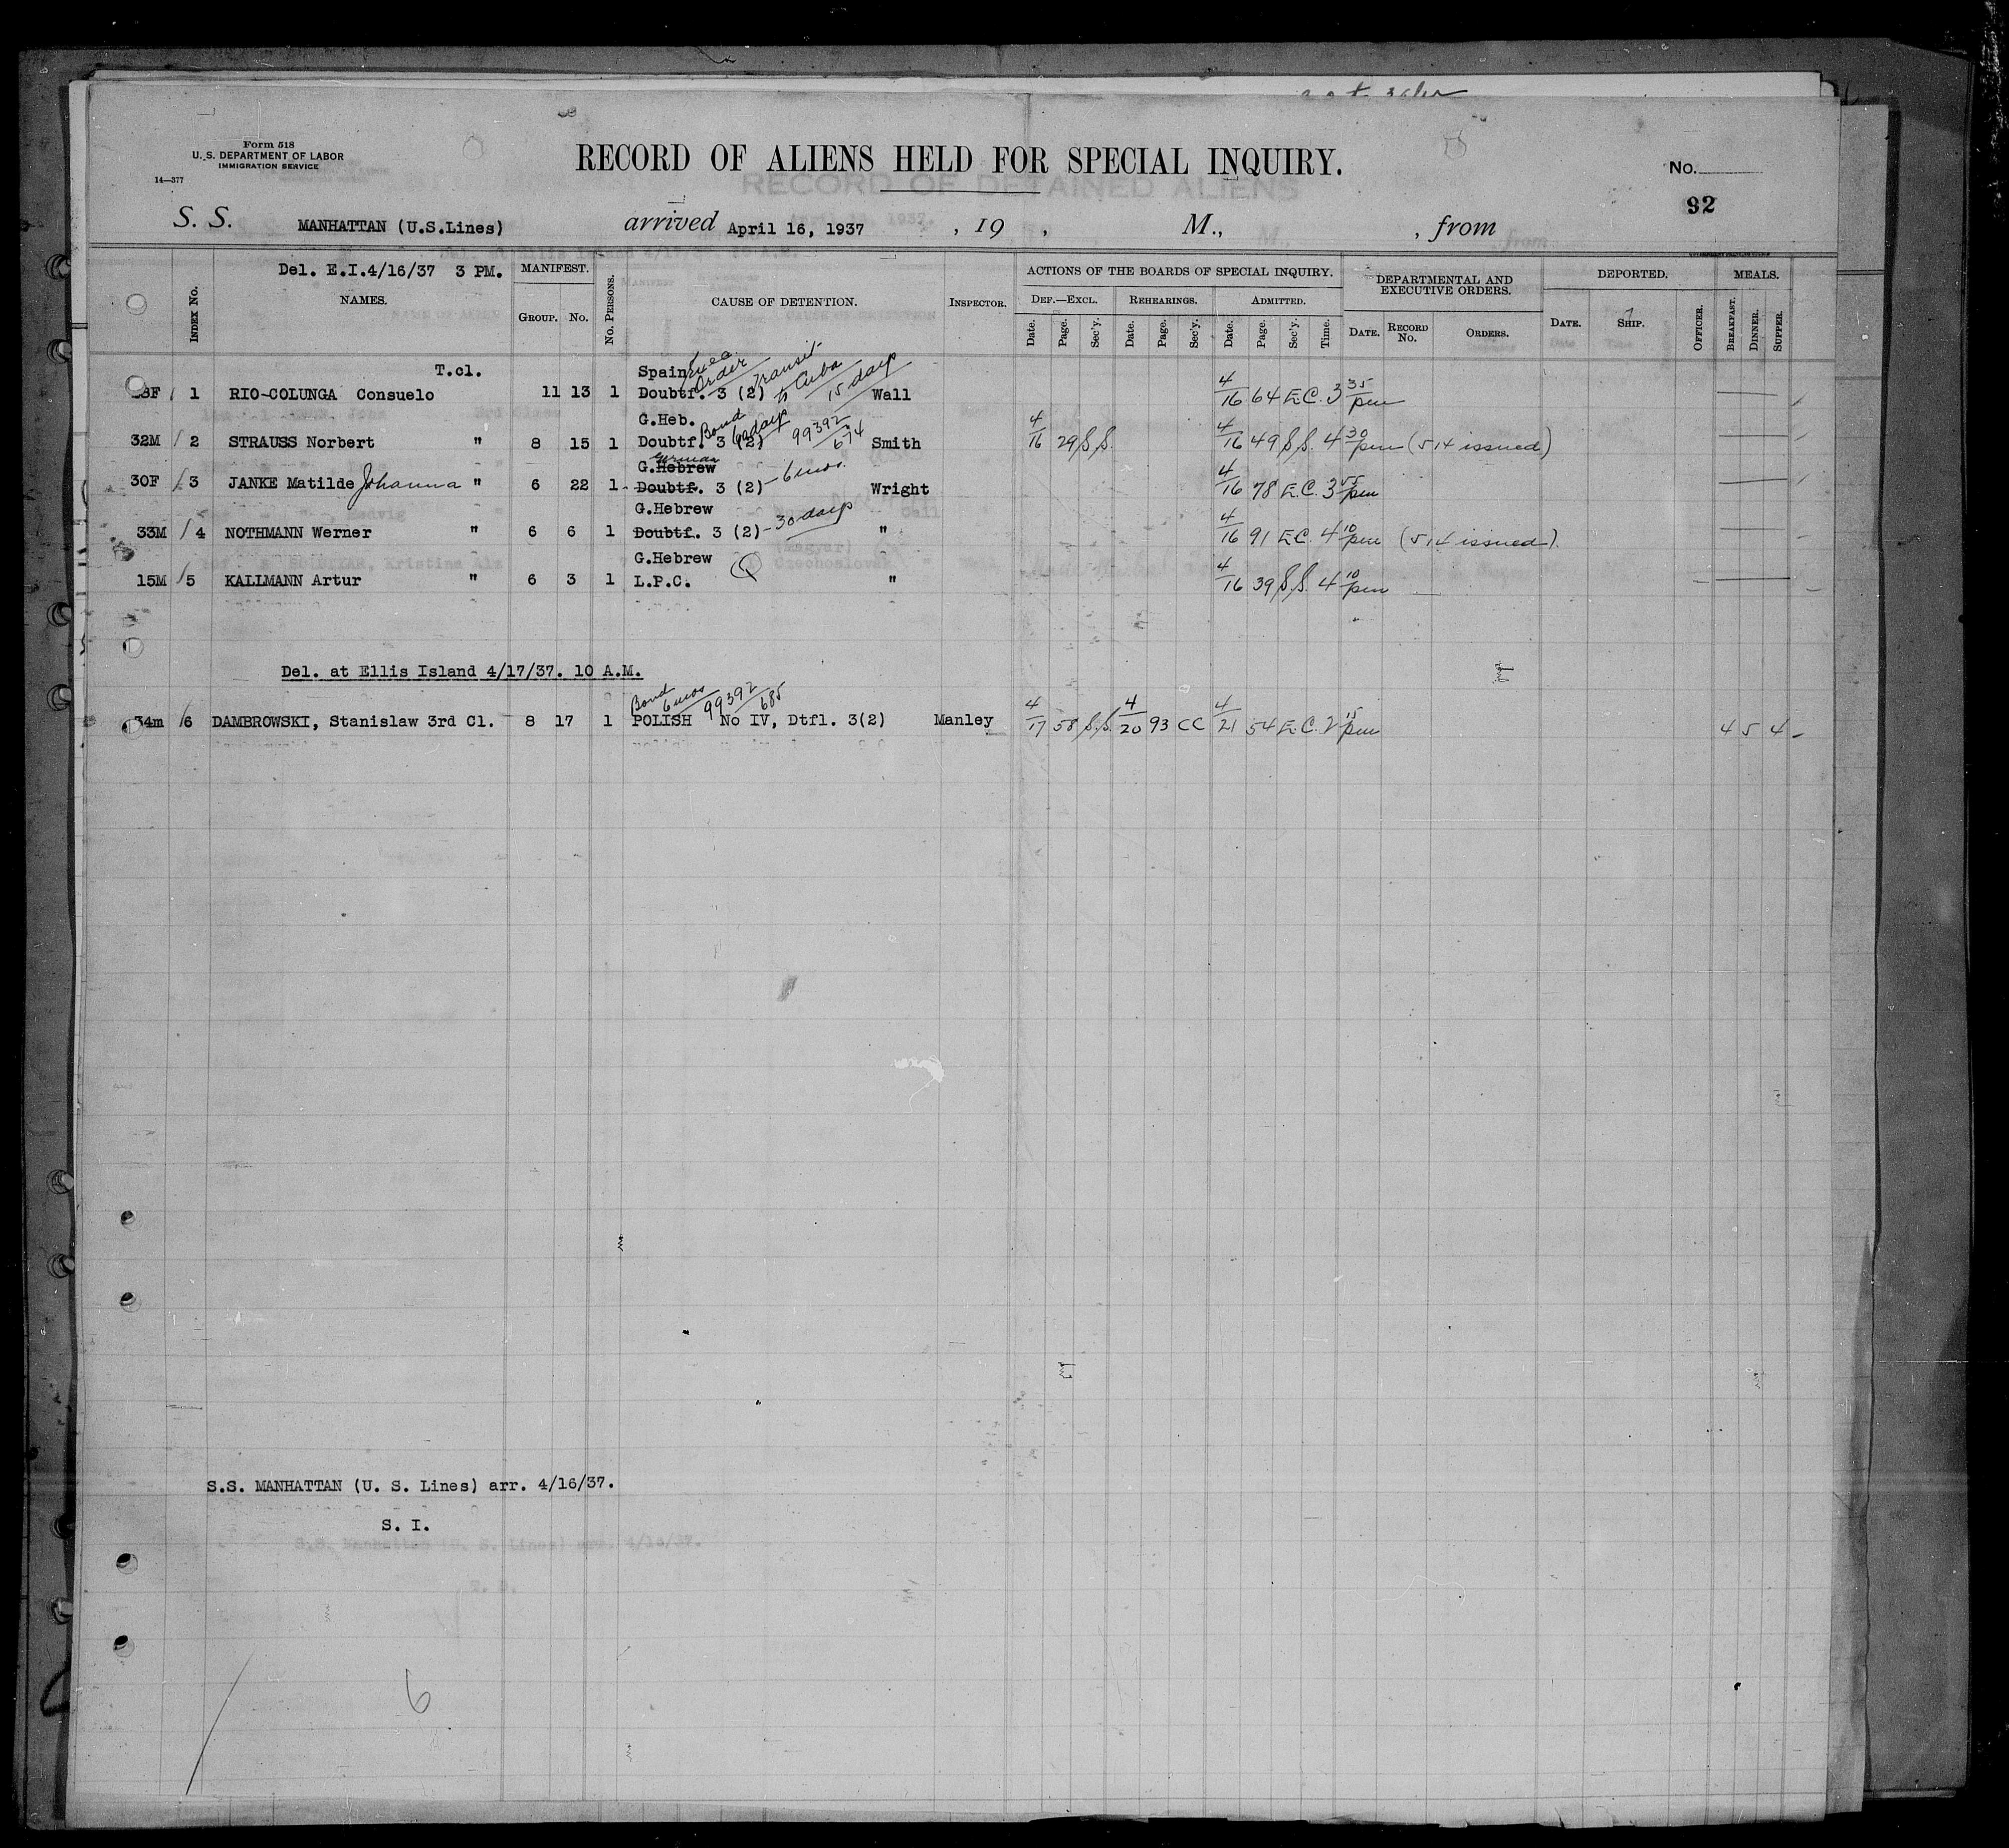 Form 518
U. S. DEPARTMENT OF LABOR
IMMIGRATION SERVICE
14—377
RECORD OF ALIENS HELD FOR SPECIAL INQUIRY.
No.
92
S. S. MANHATTAN (U.S.Lines) arrived April 16, 1937 , 19 , M., , from
Del. E.I.4/16/37 3 PM.
NAMES.
INDEX NO.
MANIFEST.
GROUP. NO.
NO. PERSONS.
CAUSE OF DETENTION.
INSPECTOR.
ACTIONS OF THE BOARDS OF SPECIAL INQUIRY.
DEF.—EXCL. REHEARINGS. ADMITTED.
Date. Page. Sec'y. Date. Page. Sec'y. Date. Page. Sec'y. Time.
DEPARTMENTAL AND EXECUTIVE ORDERS.
DATE. RECORD NO. ORDERS.
DEPORTED.
DATE. SHIP. OFFICER.
MEALS.
BREAKFAST. DINNER. SUPPER.
T.cl. Spain Order Transit to Cuba 15 days
3F 1 RIO-COLUNGA Consuelo 11 13 1 Doubtf. 3 (2) Wall 4/16 64 E.C. 3 35 pm
G.Heb. Bond 60 days 99392/674
32M 2 STRAUSS Norbert " 8 15 1 Doubtf. 3 (2) Smith 4/16 29 S.S. 4/16 49 S.S. 4 30 pm (514 issued)
G.Hebrew German
30F 3 JANKE Matilde Johanna " 6 22 1 Doubtf. 3 (2) - 6 mos. Wright 4/16 78 E.C. 3 55 pm
G.Hebrew
33M 4 NOTHMANN Werner " 6 6 1 Doubtf. 3 (2) - 30 days " 4/16 91 E.C. 4 10 pm (514 issued)
G.Hebrew
15M 5 KALLMANN Artur " 6 3 1 L.P.C. " 4/16 39 S.S. 4 10 pm
Del. at Ellis Island 4/17/37. 10 A.M.
Bond 6 mos 99392/685
34m 6 DAMBROWSKI, Stanislaw 3rd Cl. 8 17 1 POLISH No IV, Dtfl. 3(2) Manley 4/17 58 S.S. 4/20 93 CC 4/21 54 E.C. 2 15 pm 4 5 4
S.S. MANHATTAN (U. S. Lines) arr. 4/16/37.
S. I.
6